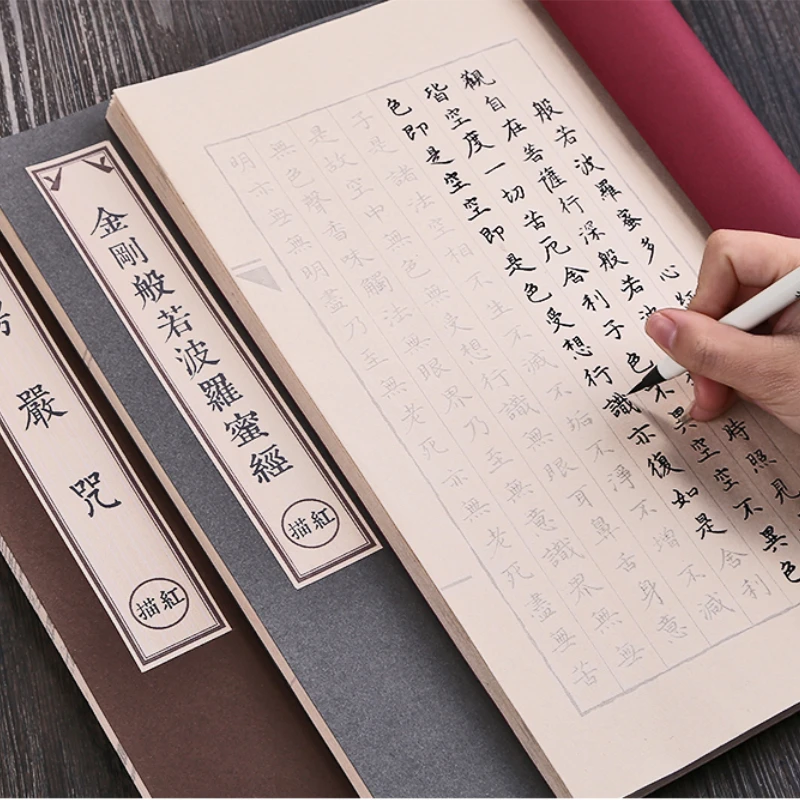 般若波羅蜜多心經
觀自在菩薩行深般若波
時照見
皆空度一切苦厄舍利子色不異空空不異色
色即是空空即是色受想行識亦復如是舍利
子是諸法空相不生不滅不垢不淨不增不減
是故空中無色無受想行識無眼耳鼻舌身意
無色聲香味觸法無眼界乃至無意識界無無
明亦無無明盡乃至無老死亦無老死盡無苦
金剛般若波羅蜜經
描紅
嚴咒
描紅